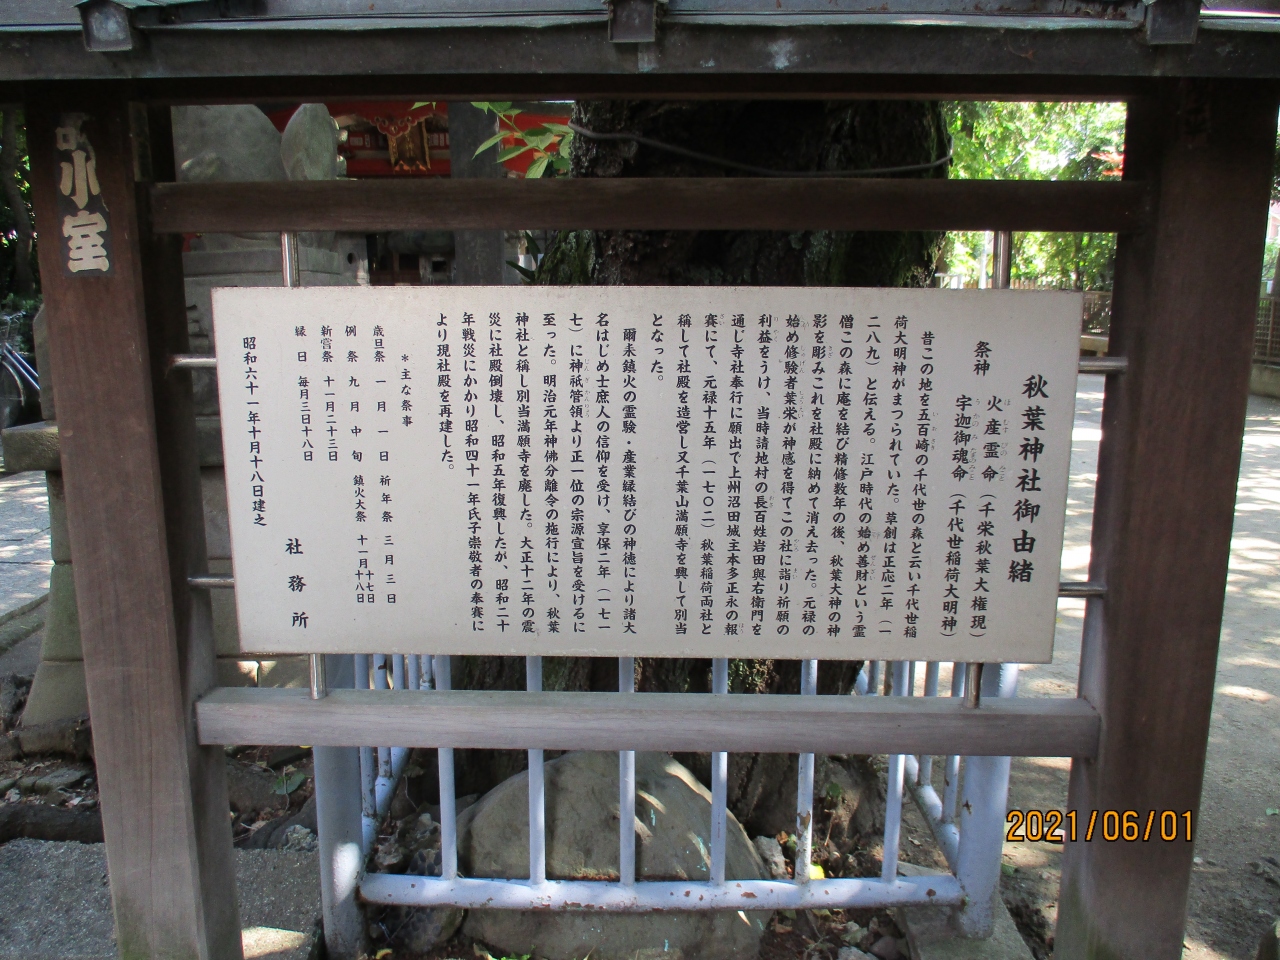 秋葉神社御由緒
祭神 火産霊命(千栄秋葉大権現)
宇迦御魂命(千代世稲荷大明神)
昔この地を五百崎の千代世の森と云い千代世稲
荷大明神がまつられていた。草創は正応二年(一
二八九)と伝える。江戸時代の始め善財という霊
僧この森に庵を結び精修数年の後、秋葉大神の神
影を彫みこれを社殿に納めて消え去った。元禄の
始め修験者葉栄が神感を得てこの社に詣り祈願の
利益をうけ、当時請地村の長百姓岩田與右衛門を
通じ寺社奉行に願出で上州沼田城主本多正永の報
賽にて、元禄十五年(一七〇二)秋葉稲荷両社と
称して社殿を造営し又千葉山満願寺を興して別当
となった。
爾来鎮火の霊験・産業縁結びの神徳により諸大
名はじめ士庶人の信仰を受け、享保二年(一七一
七)に神祇管領より正一位の宗源宣旨を受けるに
至った。明治元年神佛分離令の施行により、秋葉
神社と称し別当満願寺を廃した。大正十二年の震
災に社殿倒壊し、昭和五年復興したが、昭和二十
年戦災にかかり昭和四十一年氏子崇敬者の奉賽に
より現社殿を再建した。
*主な祭事
歳旦祭 一月一日 祈年祭 三月三日
例祭 九月中旬 鎮火大祭 十一月十七日 十八日
新嘗祭 十一月二十三日
縁日 毎月三日十八日
昭和六十一年十月十八日建之
社務所
小室
2021/06/01